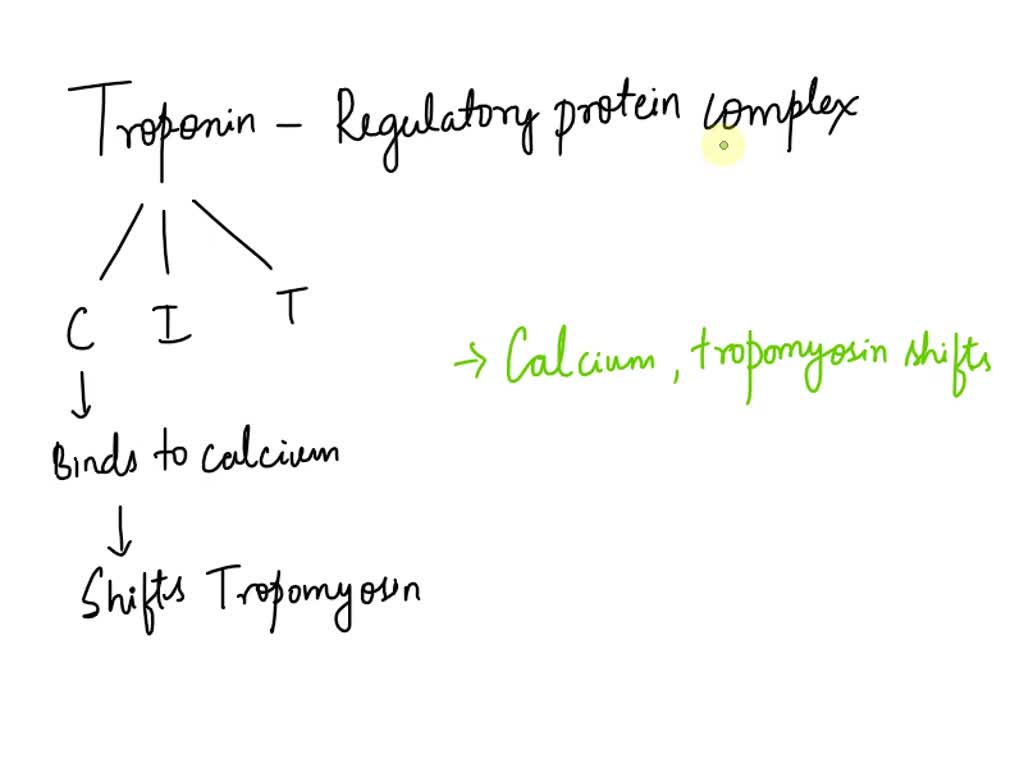 Troponin - Regulatory protein complex
C I T
→ Calcium, tropomyosin shifts
↓
Binds to calcium
↓
Shifts Tropomyosin